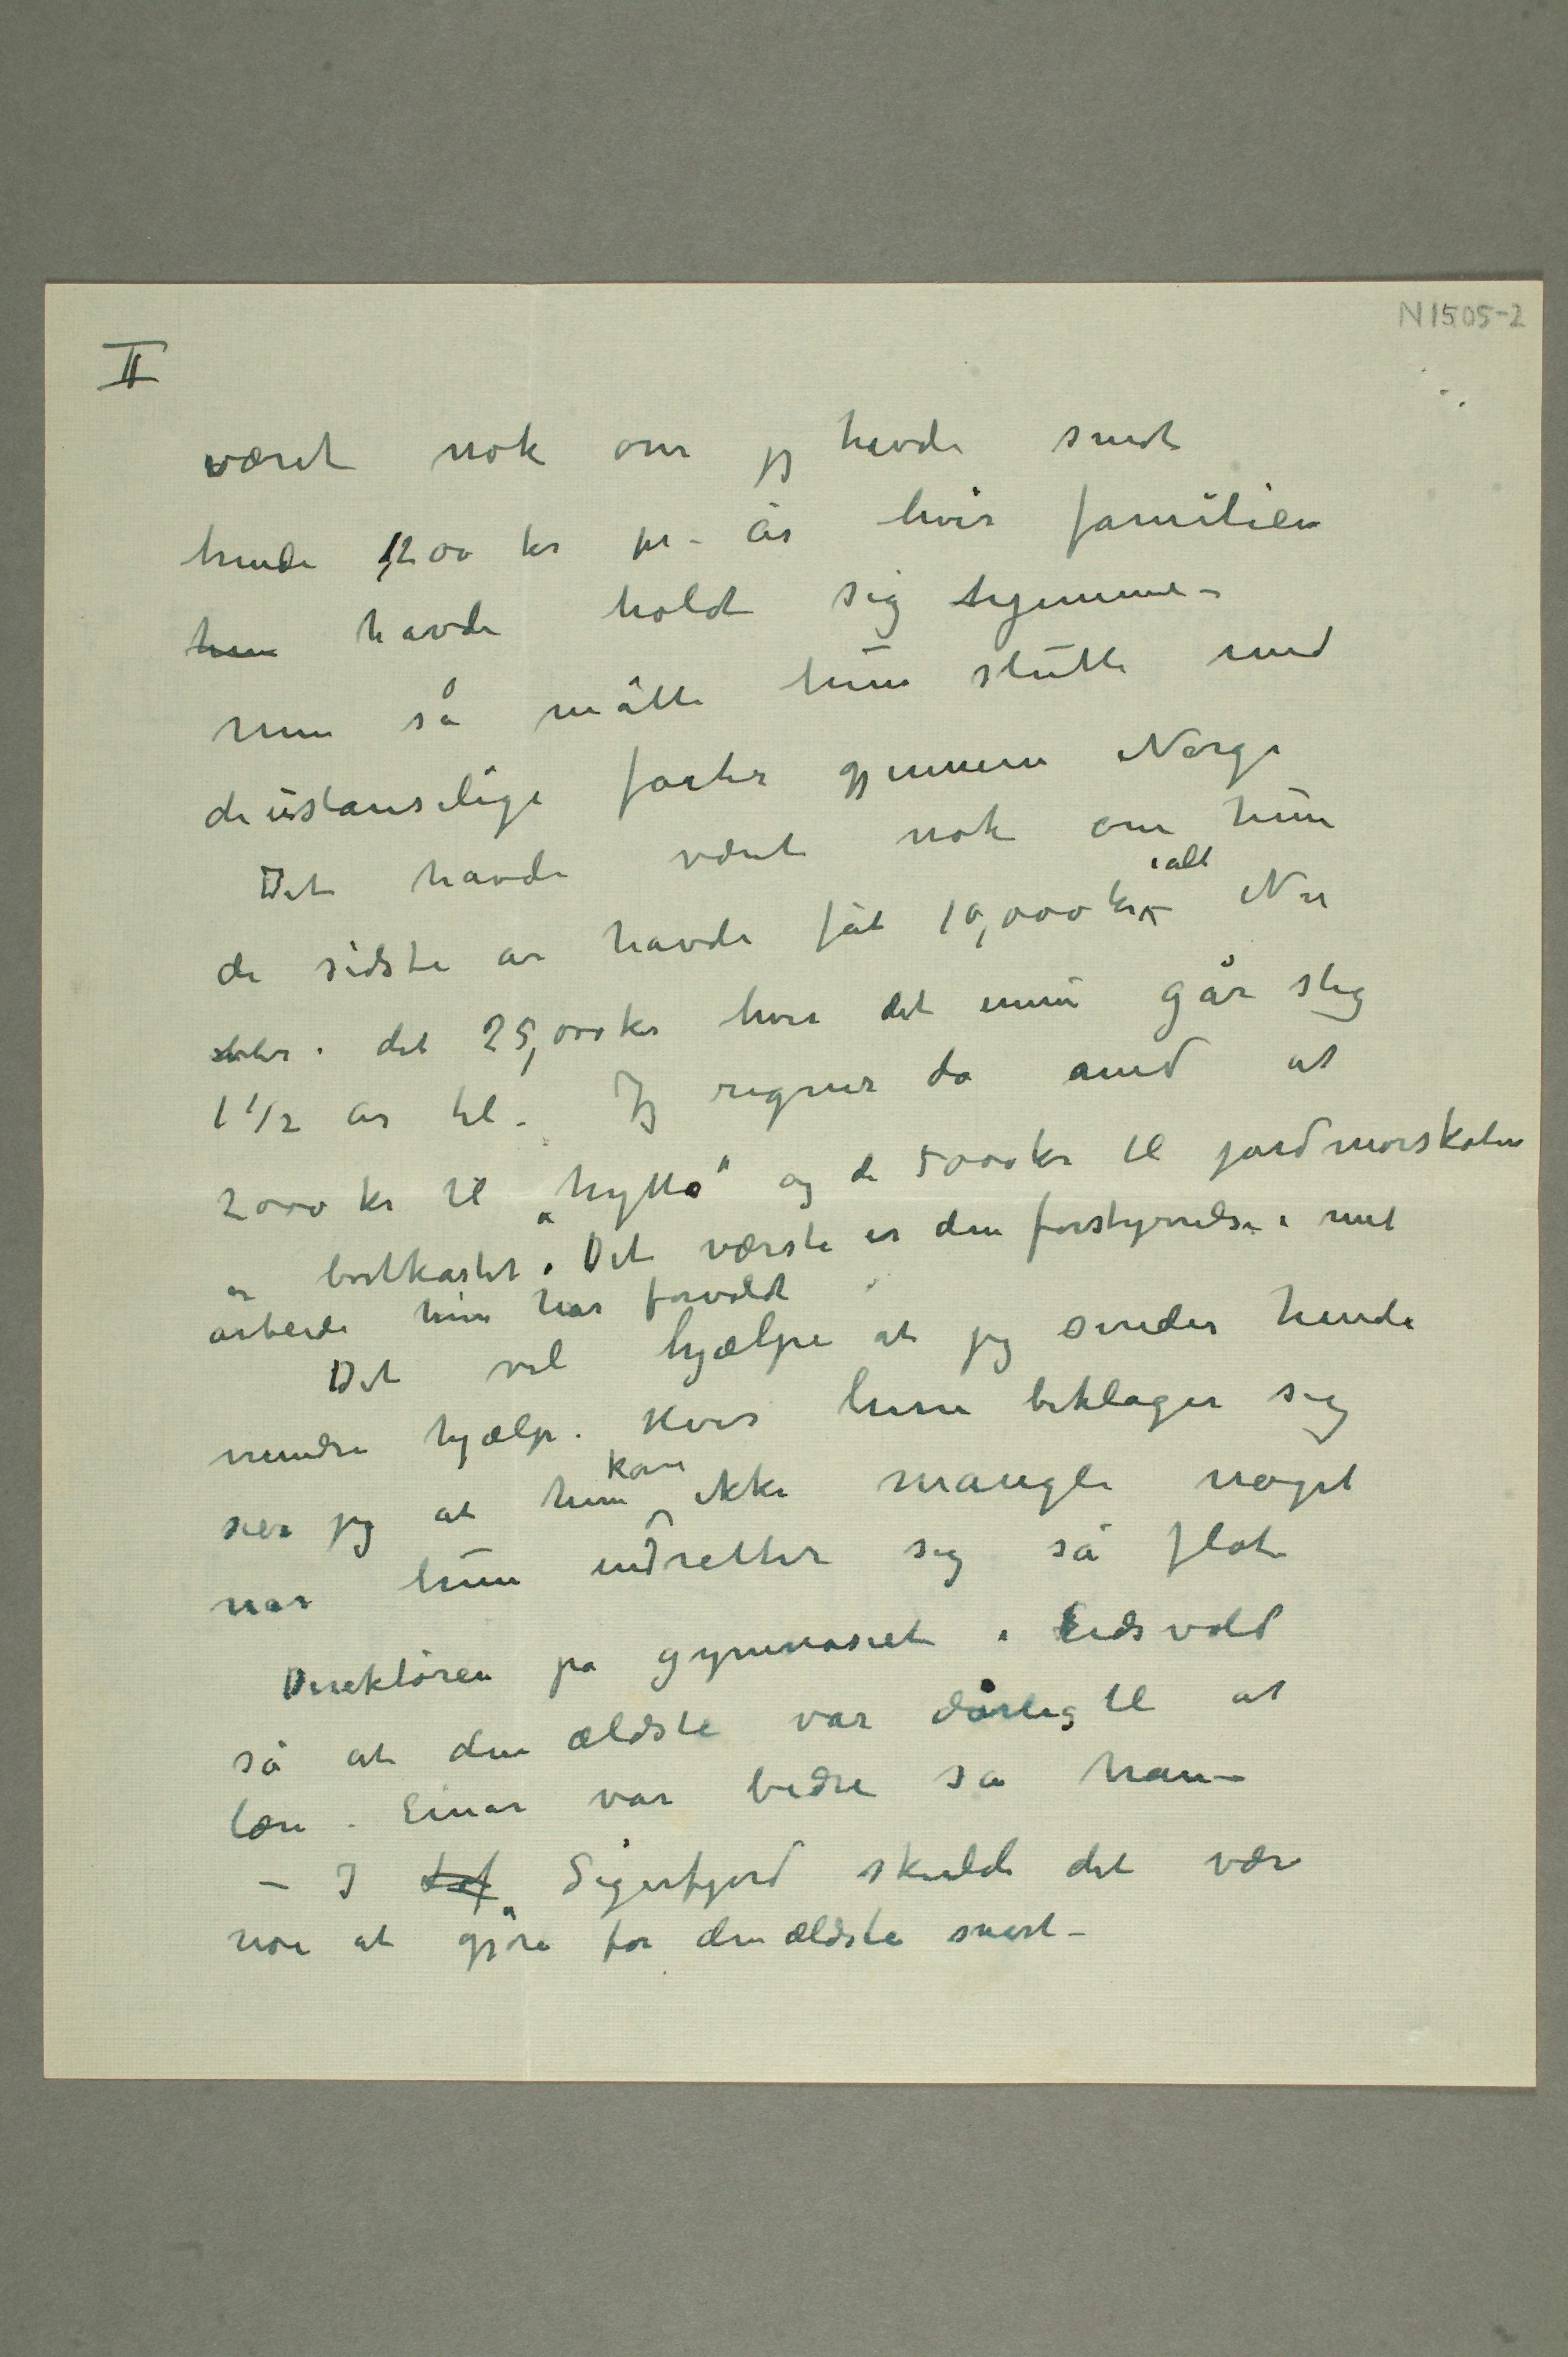 N 1505-2
II
været nok om jeg havde sendt
hende 1200 kr pr. år hvis familien
hun havde holdt sig hjemme –
men så måtte hun slutte med
de ustanselige farter gjennem Norge
Det havde været nok om hun
de sidste år havde fåt 10,000 kr ialt – Nu
blir det 25,000 kr hvis det ennu går slig
1 1/2 år til. Jeg regner da med at
2000 kr til „hytta" og de 5000 kr til jordmorskolen
er bortkastet. Det værste er den forstyrrelse i mit
arbeide hun har forvoldt
Det vil hjælpe at jeg sender hende
mindre hjælp. Hvis hun beklager sig
sier jeg at hun kan ikke mangle noget
når hun indretter sig så flot
Direktøren på gymnasiet i Eidsvold
så at den ældste var dårlig til at
lære. Einar var bedre sa han –
– I Lof Sigerfjord skulde det være
noe at gjøre for den ældste snart –